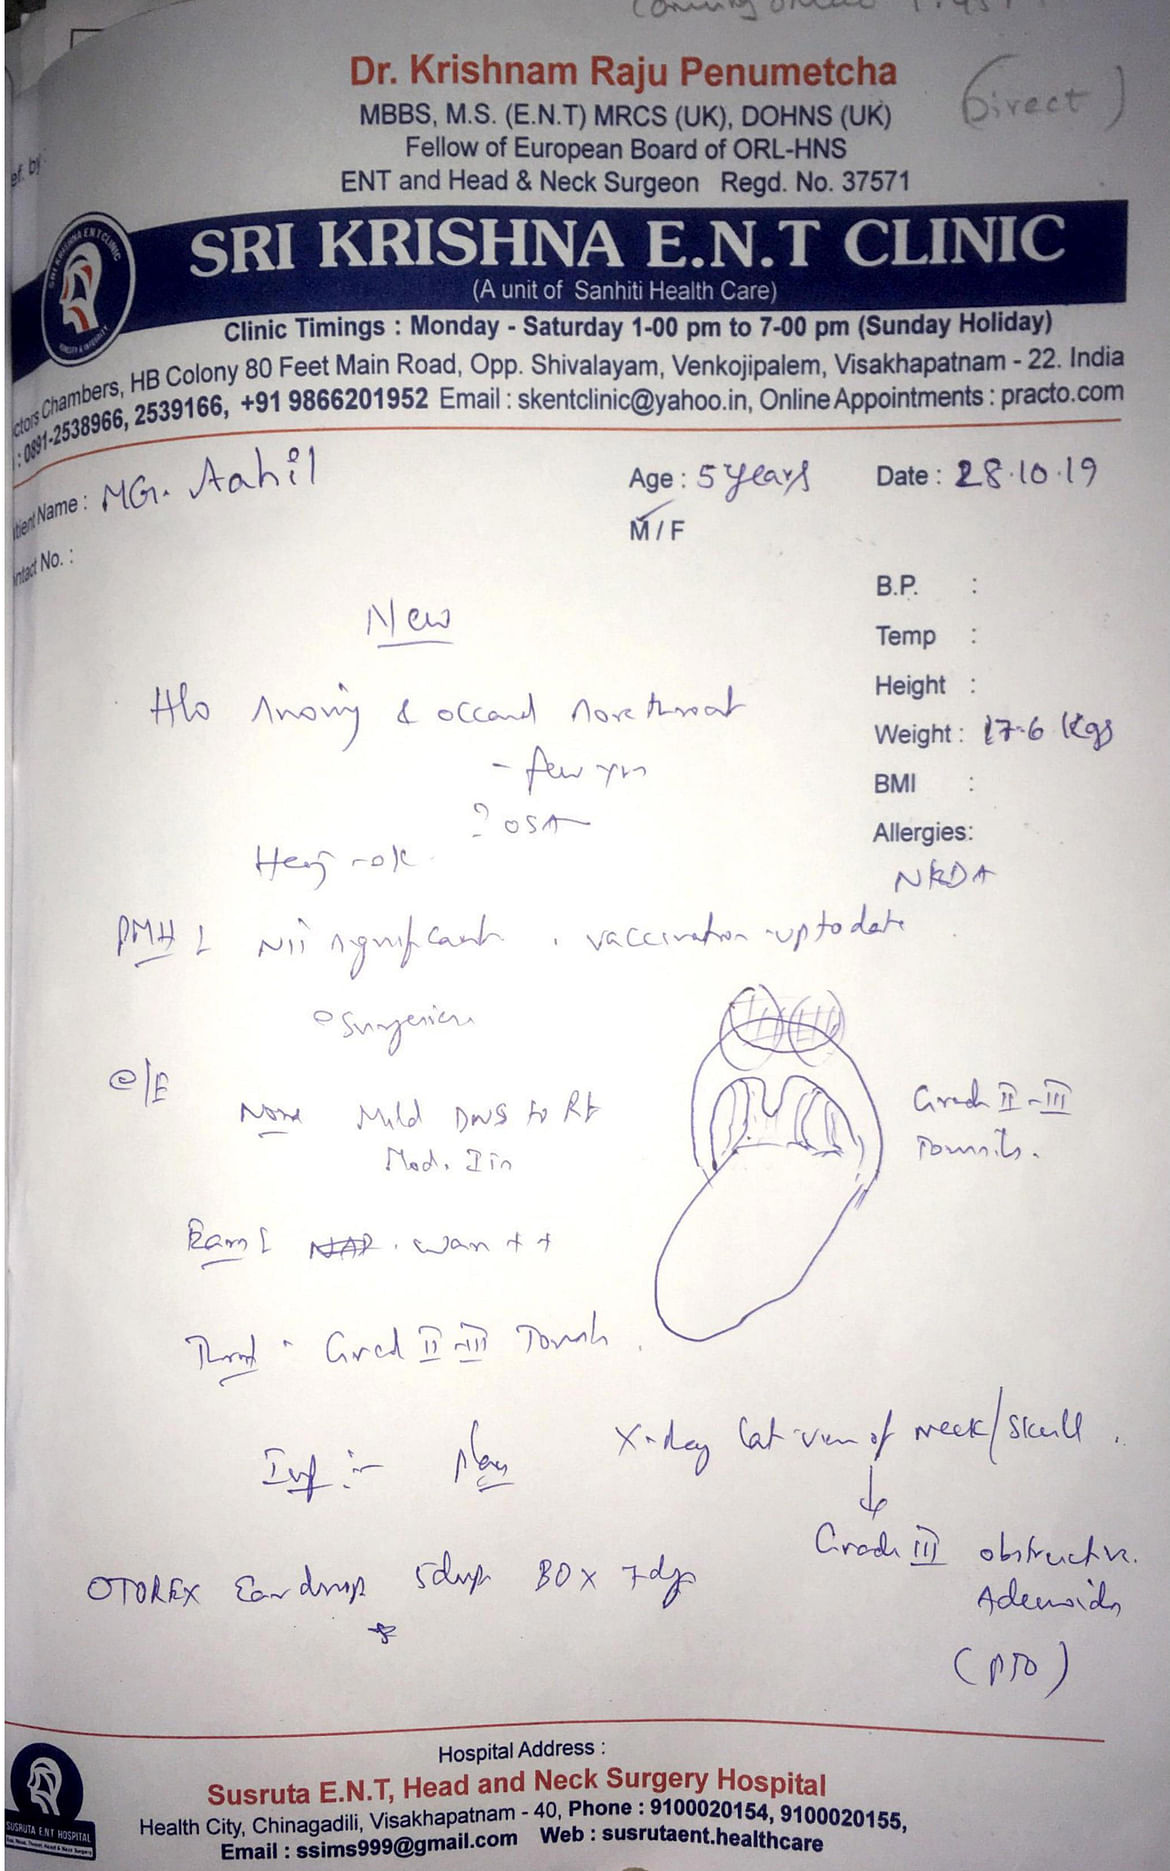 (Direct)
Dr. Krishnam Raju Penumetcha
MBBS, M.S. (E.N.T) MRCS (UK), DOHNS (UK)
Fellow of European Board of ORL-HNS
ENT and Head & Neck Surgeon Regd. No. 37571
ef. by
SRI KRISHNA E.N.T CLINIC
(A unit of Sanhiti Health Care)
Clinic Timings : Monday - Saturday 1-00 pm to 7-00 pm (Sunday Holiday)
ctors Chambers, HB Colony 80 Feet Main Road, Opp. Shivalayam, Venkojipalem, Visakhapatnam - 22. India
: 0891-2538966, 2539166, +91 9866201952 Email : skentclinic@yahoo.in, Online Appointments : practo.com
tient Name : MG. Aahil Age : 5 years Date : 28.10.19
M / F
ntact No. :
B.P. :
New
Temp :
Height :
H/o snoring & occasnl sore throat
Weight : 17.6 Kgs
- few yrs
BMI :
? OSA
Allergies:
Hearing - ok
NKDA
PMH : Nil significant . vaccination - up to date
surgeries
O/E
Nose Mild DNS to Rt
Mod. 
Grade II - III
Tonsils.
Ears : NAD . wax + +
Throat - Grade II - III Tonsils.
X-Ray lat view of neck/skull.
Inv :- Plan
Grade III obstructive.
Adenoids
OTOREX Ear drops 5 drops BD x 7 days
(PTO)
Hospital Address :
Susruta E.N.T, Head and Neck Surgery Hospital
Health City, Chinagadili, Visakhapatnam - 40, Phone : 9100020154, 9100020155,
Email : ssims999@gmail.com Web : susrutaent.healthcare
SUSRUTA ENT HOSPITAL